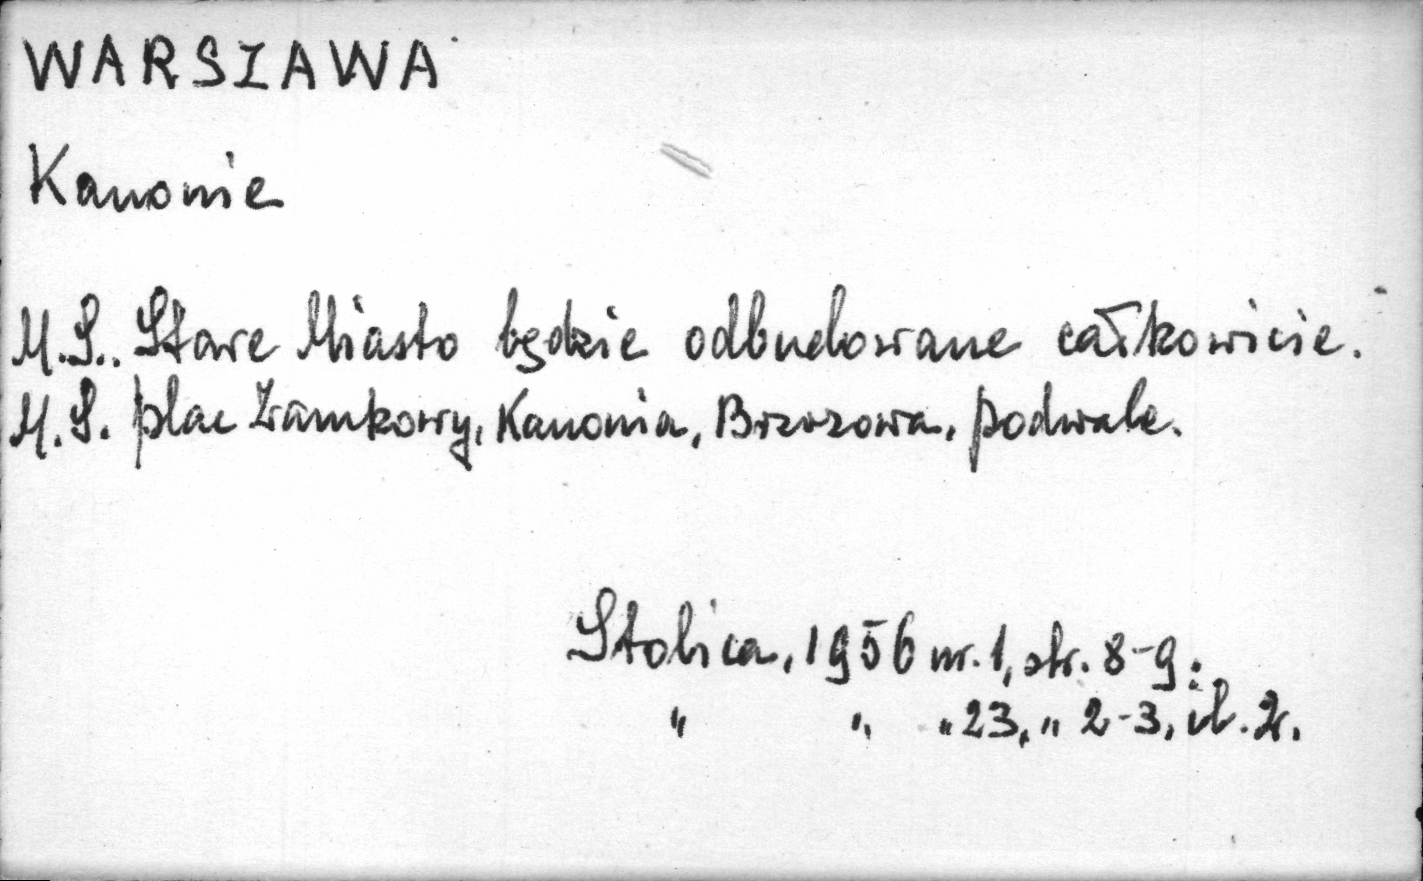 WARSZAWA
Kanonie
M.S.. Stare Miasto będzie odbudowane całkowicie.
M.S. plac Zamkowy, Kanonia, Brzozowa, Podwale.
Stolica, 1956 nr. 1, str. 8-9;
" " " 23, " 2-3, il. 2.